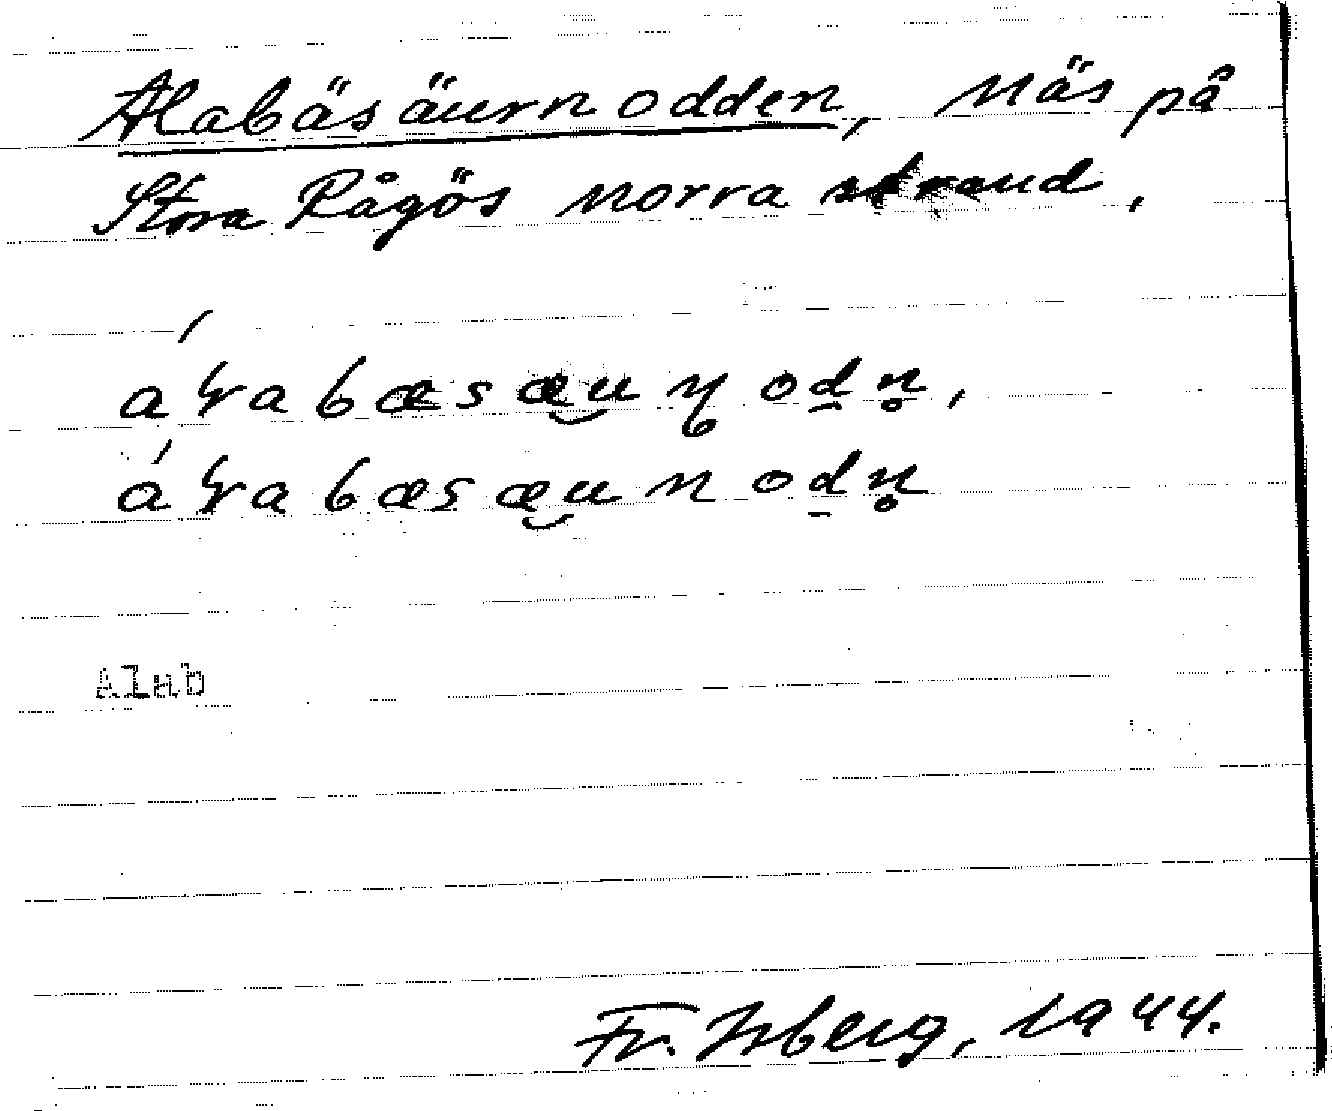 Alabäsäurnodden, näs på
Stora Rågös norra strand,
aɽabæsæu̯ɳod̲n̥,
aɽabæsæu̯nod̲n̥
Alab
Fr. Isberg, 1944.